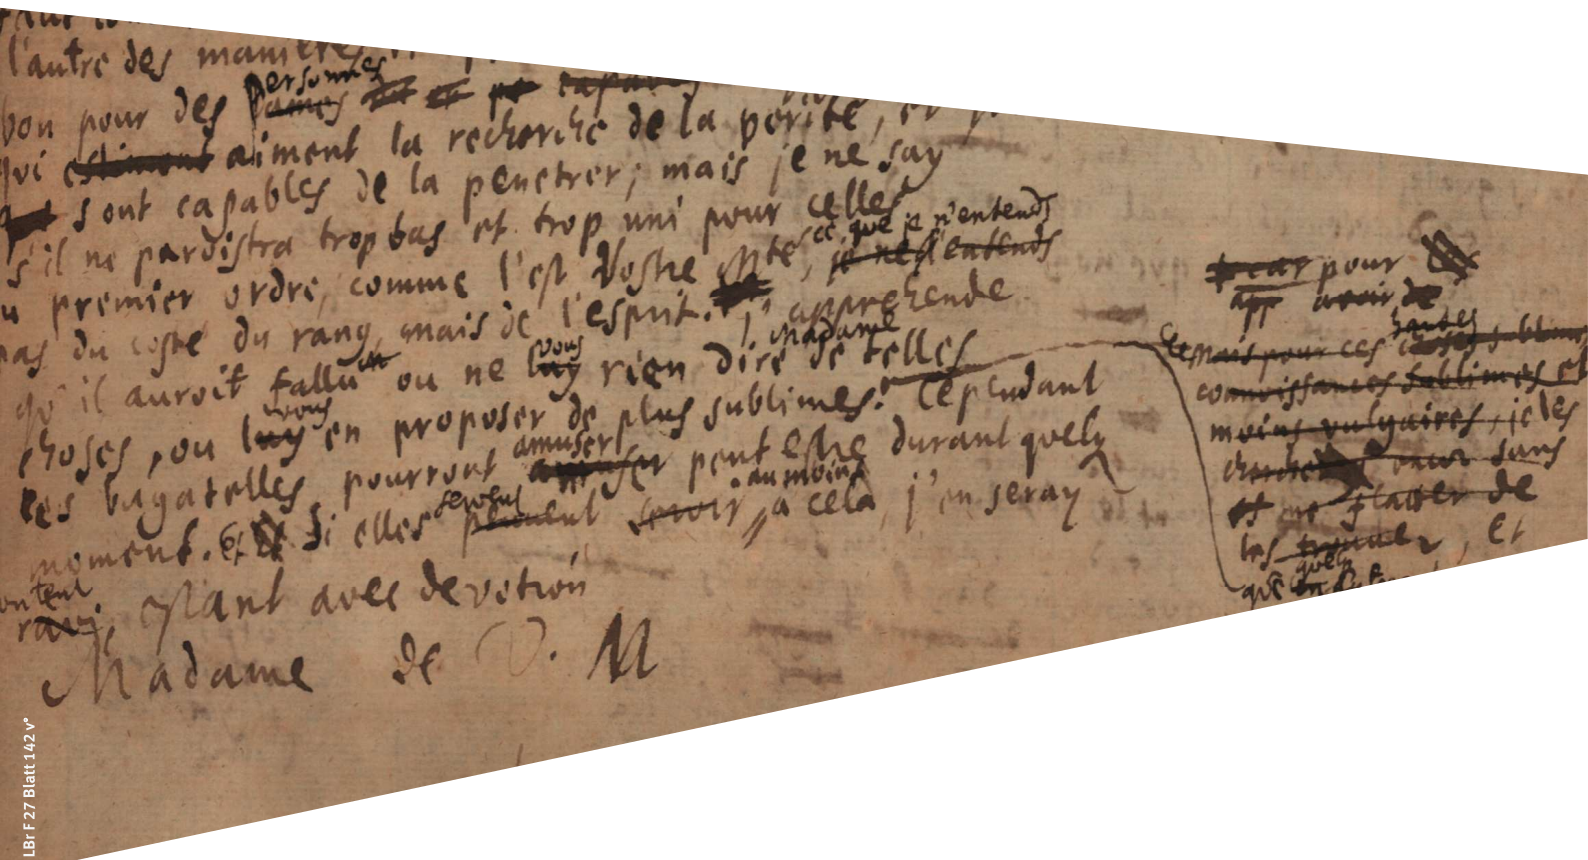 l'autre des manieres
bon pour des personnes
qui estiment aiment la recherche de la verité, et
sont capables de la penetrer; mais je ne say
s'il ne paroistra trop bas et trop uni pour celles
premier ordre, comme l'est Vostre Mté, ce que je n'entends
je ne l'entends
pas du costé du rang, mais de l'esprit. j'apprehende
qu'il auroit fallu ou ne vous luy rien dire de telles
Madame
choses, ou vous luy en proposer de plus sublimes. Cependant
ces bagatelles pourront amuser amuser peut estre durant quelq
moment. Et si elles servent peuvent servir au moins à cela, j'en seray
content
ravi, estant avec devotion
Madame de V. M
car pour
app avoir de
Mais pour ces hautes choses sublimes
connoissances sublimes et
moins vulgaires, je les
cherche encor sans
et me flatter de
les trouver, Et
que quelq
LBr F 27 Blatt 142 v°